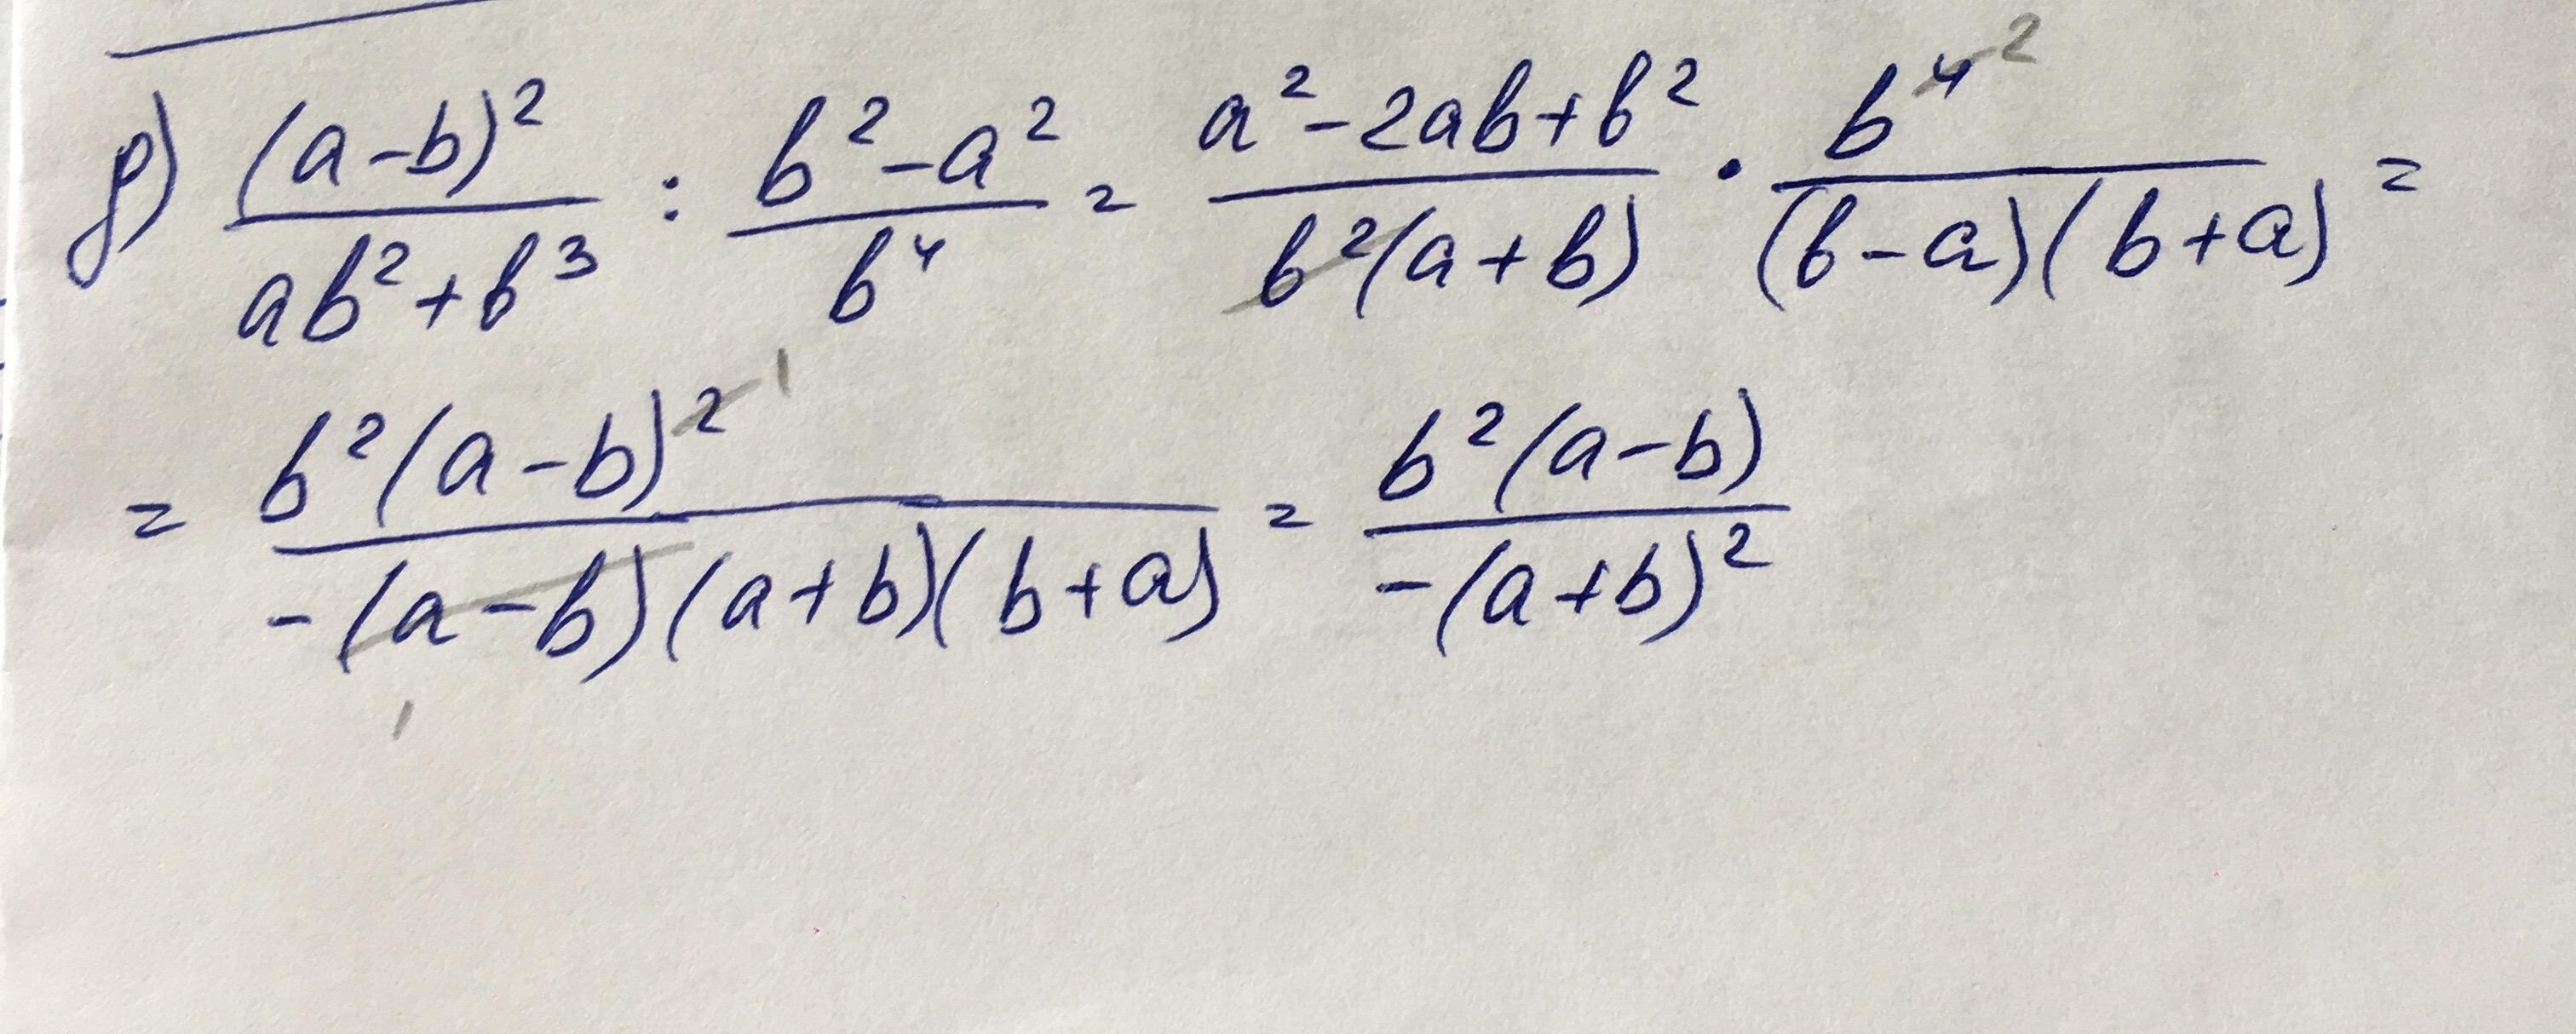 д) (a-b)²/(ab²+b³) : (b²-a²)/b⁴ = (a²-2ab+b²)/(b²(a+b)) · b⁴ ²/((b-a)(b+a)) =
= b²(a-b)² ¹/(-(a-b)(a+b)(b+a)) ₁ = b²(a-b)/(-(a+b)²)